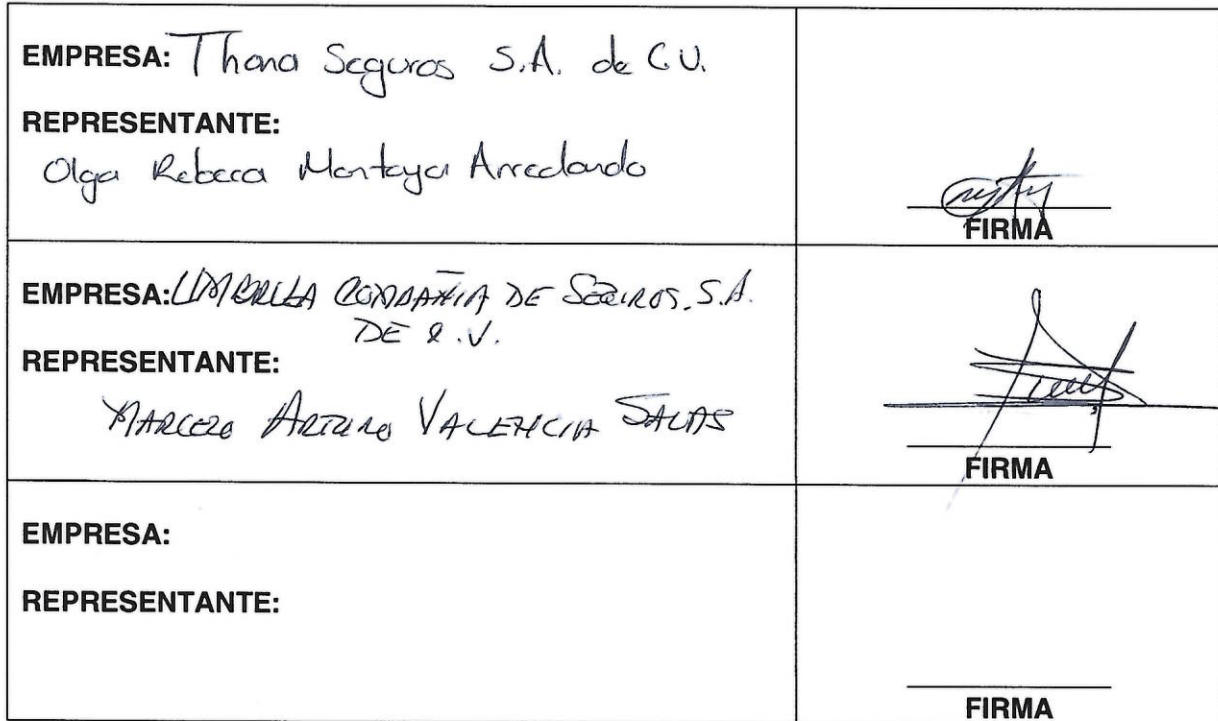 EMPRESA: Thona Seguros S.A. de C.V.
REPRESENTANTE:
Olga Rebeca Montoya Arredondo
FIRMA
EMPRESA: UMBRELLA COMPAÑIA DE SEGUROS, S.A.
DE C.V.
REPRESENTANTE:
MARCELO ARTURO VALENCIA SALAS
FIRMA
EMPRESA:
REPRESENTANTE:
FIRMA